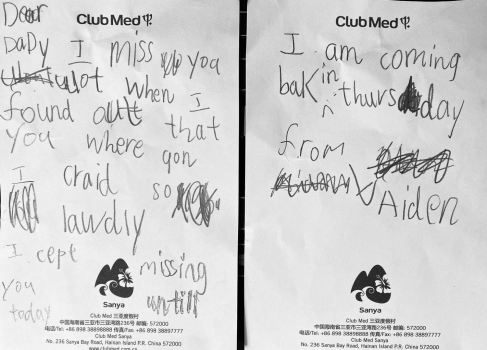 Club Med
Dear
DaDy I miss you
alot when I
found out that
you where gon
I craid so
lawdly
I cept missing
you untill
today
Sanya
Club Med 三亚度假村
中国海南省三亚市三亚湾路236号 邮编: 572000
电话/Tel: +86 898 38898888 传真/Fax: +86 898 38897777
No. 236 Sanya Bay Road, Hainan Island P.R. China 572000
www.clubmed.com.cn
Club Med
I am coming
bak in thursday
from
Aiden
Sanya
Club Med 三亚度假村
中国海南省三亚市三亚湾路236号 邮编: 572000
电话/Tel: +86 898 38898888 传真/Fax: +86 898 38897777
No. 236 Sanya Bay Road, Hainan Island P.R. China 572000